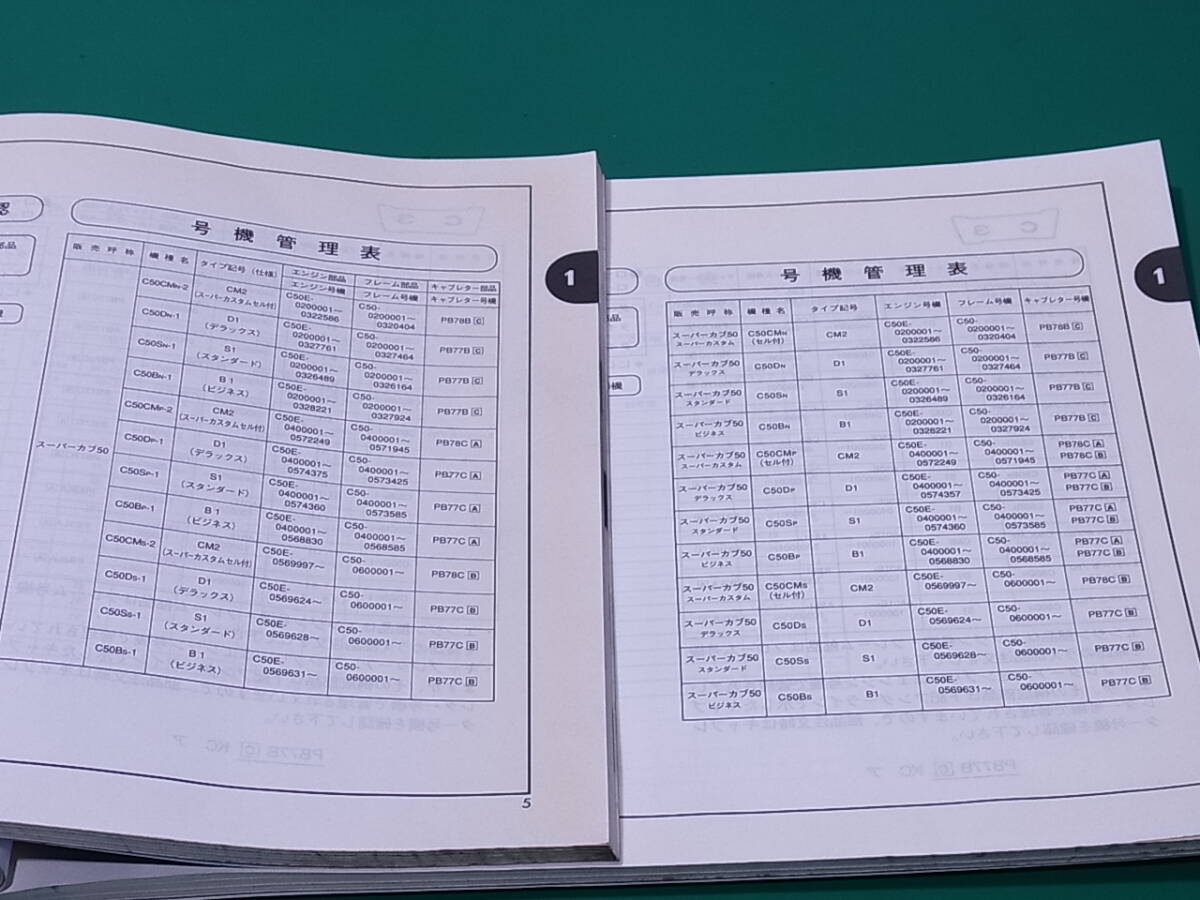 号機管理表
販売呼称 機種名 タイプ記号(仕様) エンジン部品 フレーム部品 キャブレター部品
エンジン号機 フレーム号機 キャブレター号機
スーパーカブ50
C50CMN-2 CM2 (スーパーカスタムセル付) C50E-0200001〜0322586 C50-0200001〜0320404 PB78B C
C50DN-1 D1 (デラックス) C50E-0200001〜0327761 C50-0200001〜0327464 PB77B C
C50SN-1 S1 (スタンダード) C50E-0200001〜0326489 C50-0200001〜0326164 PB77B C
C50BN-1 B1 (ビジネス) C50E-0200001〜0328221 C50-0200001〜0327924 PB77B C
C50CMP-2 CM2 (スーパーカスタムセル付) C50E-0400001〜0572249 C50-0400001〜0571945 PB78C A
C50DP-1 D1 (デラックス) C50E-0400001〜0574375 C50-0400001〜0573425 PB77C A
C50SP-1 S1 (スタンダード) C50E-0400001〜0574360 C50-0400001〜0573585 PB77C A
C50BP-1 B1 (ビジネス) C50E-0400001〜0568830 C50-0400001〜0568585 PB77C A
C50CMS-2 CM2 (スーパーカスタムセル付) C50E-0569997〜 C50-0600001〜 PB78C B
C50DS-1 D1 (デラックス) C50E-0569624〜 C50-0600001〜 PB77C B
C50SS-1 S1 (スタンダード) C50E-0569628〜 C50-0600001〜 PB77C B
C50BS-1 B1 (ビジネス) C50E-0569631〜 C50-0600001〜 PB77C B
1
5
号機管理表
販売呼称 機種名 タイプ記号 エンジン号機 フレーム号機 キャブレター号機
スーパーカブ50 スーパーカスタム C50CMN (セル付) CM2 C50E-0200001〜0322586 C50-0200001〜0320404 PB78B C
スーパーカブ50 デラックス C50DN D1 C50E-0200001〜0327761 C50-0200001〜0327464 PB77B C
スーパーカブ50 スタンダード C50SN S1 C50E-0200001〜0326489 C50-0200001〜0326164 PB77B C
スーパーカブ50 ビジネス C50BN B1 C50E-0200001〜0328221 C50-0200001〜0327924 PB77B C
スーパーカブ50 スーパーカスタム C50CMP (セル付) CM2 C50E-0400001〜0572249 C50-0400001〜0571945 PB78C A PB78C B
スーパーカブ50 デラックス C50DP D1 C50E-0400001〜0574357 C50-0400001〜0573425 PB77C A PB77C B
スーパーカブ50 スタンダード C50SP S1 C50E-0400001〜0574360 C50-0400001〜0573585 PB77C A PB77C B
スーパーカブ50 ビジネス C50BP B1 C50E-0400001〜0568830 C50-0400001〜0568585 PB77C A PB77C B
スーパーカブ50 スーパーカスタム C50CMS (セル付) CM2 C50E-0569997〜 C50-0600001〜 PB78C B
スーパーカブ50 デラックス C50DS D1 C50E-0569624〜 C50-0600001〜 PB77C B
スーパーカブ50 スタンダード C50SS S1 C50E-0569628〜 C50-0600001〜 PB77C B
スーパーカブ50 ビジネス C50BS B1 C50E-0569631〜 C50-0600001〜 PB77C B
1